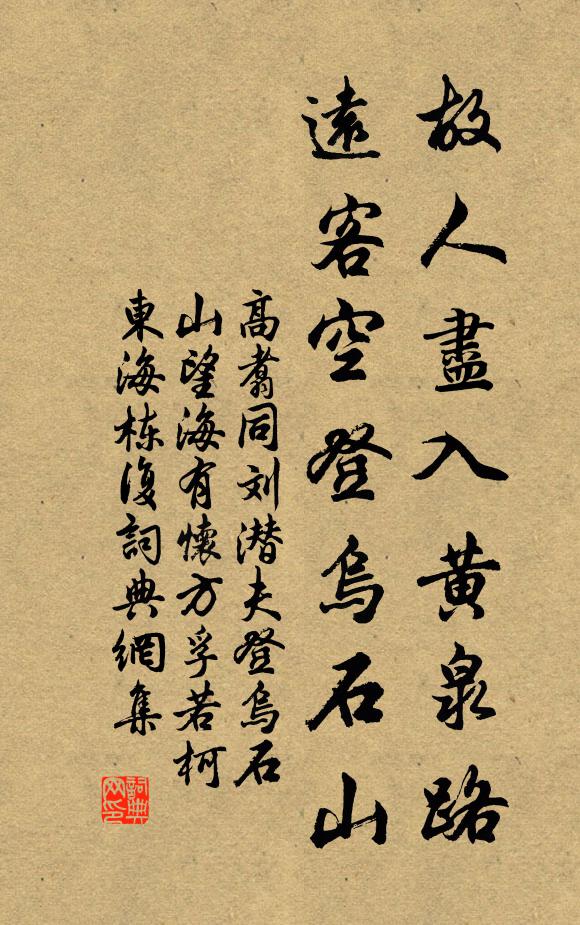 故人盡入黄泉路
遠客空登烏石山
高翥同刘潜夫登烏石
山望海有懷方孚若柯
東海栋復詞典網集
詞典網印